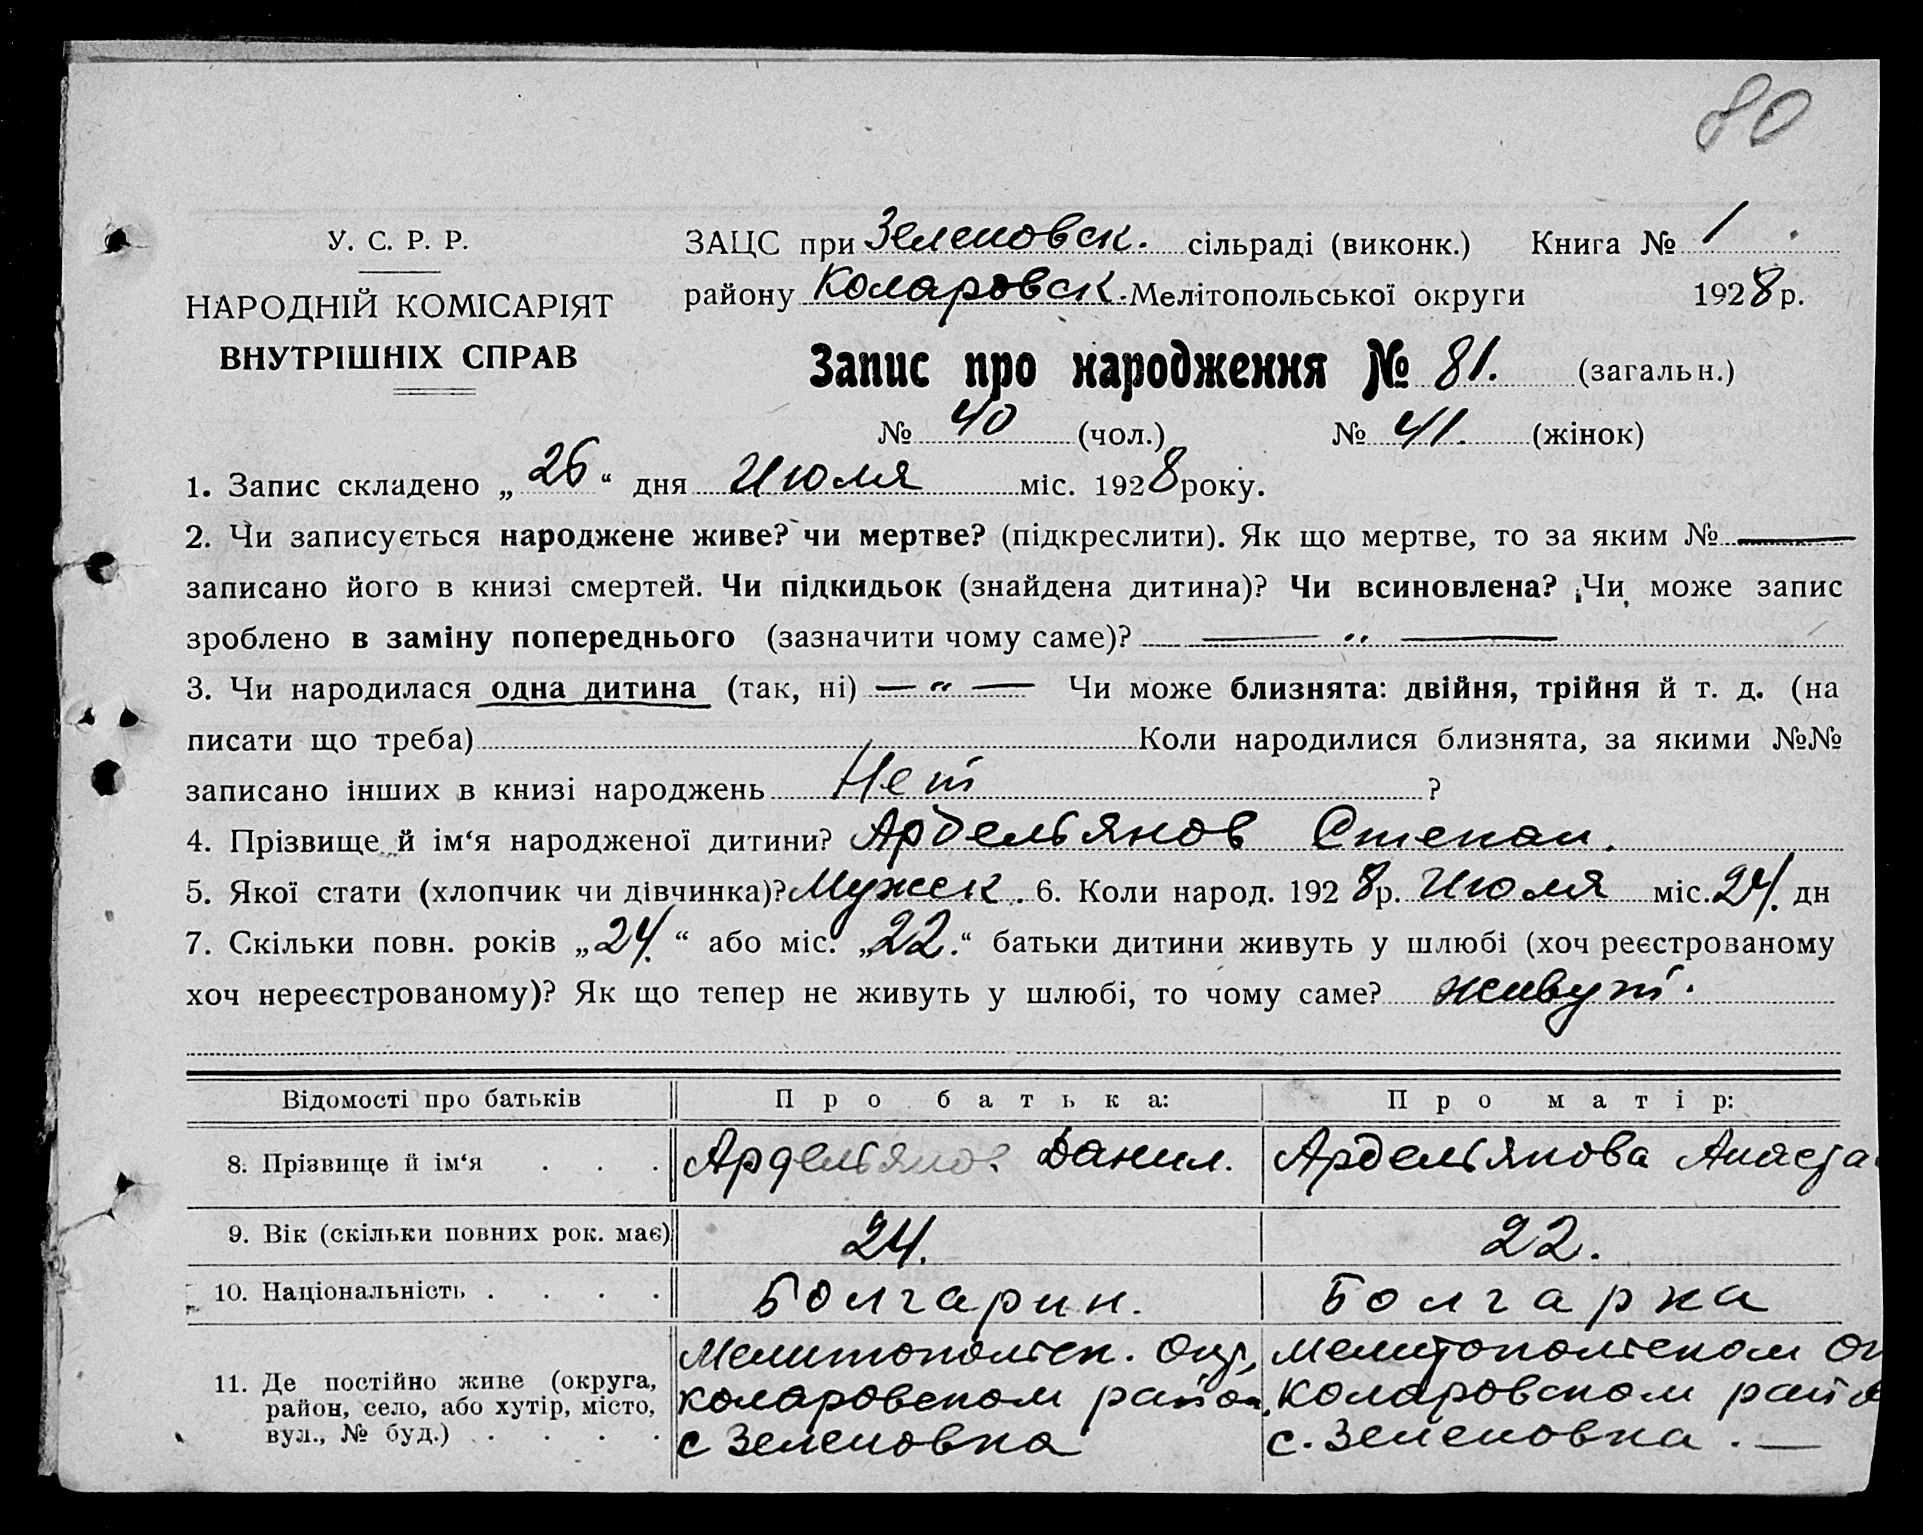 80
У. С. Р. Р.
НАРОДНІЙ КОМІСАРІЯТ
ВНУТРІШНІХ СПРАВ
ЗАЦС при Зеленовск. сільраді (виконк.) Книга № 1
району Коларовск. Мелітопольської округи 1928 р.
Запис про народження № 81. (загальн.)
№ 40 (чол.) № 41. (жінок)
1. Запис складено „ 26 “ дня Июля міс. 1928 року.
2. Чи записується народжене живе? чи мертве? (підкреслити). Як що мертве, то за яким № —
записано його в книзі смертей. Чи підкидьок (знайдена дитина)? Чи всиновлена? Чи може запис
зроблено в заміну попереднього (зазначити чому саме)? — „ —
3. Чи народилася одна дитина (так, ні) — „ — Чи може близнята: двійня, трійня й т. д. (на
писати що треба) Коли народилися близнята, за якими №№
записано інших в книзі народжень Нет ?
4. Прізвище й ім‘я народженої дитини? Ардельянов Степан.
5. Якої стати (хлопчик чи дівчинка)? Мужск. 6. Коли народ. 1928 р. Июля міс. 24. дн
7. Скільки повн. років „ 24. “ або міс. „ 22. “ батьки дитини живуть у шлюбі (хоч реєстрованому
хоч нереєстрованому)? Як що тепер не живуть у шлюбі, то чому саме? живут.
Відомості про батьків Про батька: Про матір:
8. Прізвище й ім‘я . . . Ардельянов Данил. Ардельянова Анаста
9. Вік (скільки повних рок. має) 24. 22.
10. Національність . . . . Болгарин. Болгарка
11. Де постійно живе (округа, район, село, або хутір, місто, вул., № буд.) . . . .
Мелитопольск. Окр,
Коларовском район.
с Зеленовка
Мелитопольском Ок
Коларовском райо
с. Зеленовка . —